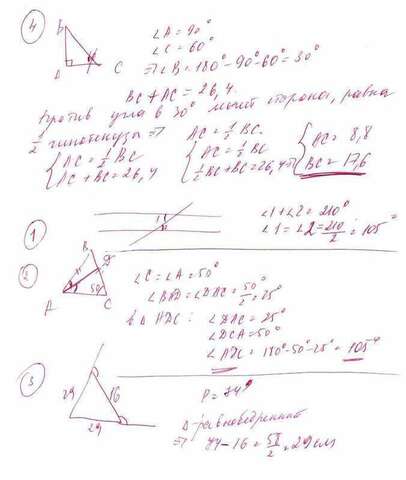 4
B
A
C
∠A = 90°
∠C = 60°
⇒ ∠B = 180° - 90° - 60° = 30°
BC + AC = 26,4
Против угла в 30° лежит сторона, равна
1/2 гипотенузы ⇒ AC = 1/2 BC.
{ AC = 1/2 BC { AC = 1/2 BC { AC = 8,8
AC + BC = 26,4 1/2 BC + BC = 26,4 ⇒ BC = 17,6
1
1
2
∠1 + ∠2 = 210°
∠1 = ∠2 = 210/2 = 105°
2
B
D
A
50
C
∠C = ∠A = 50°
∠BAD = ∠DAC = 50°/2 = 25°
ΔADC: ∠DAC = 25°
∠DCA = 50°
∠ADC = 180° - 50° - 25° = 105°
3
29
16
29
P = 74
Δ-равнобедренный
⇒ 74 - 16 = 58/2 = 29 см